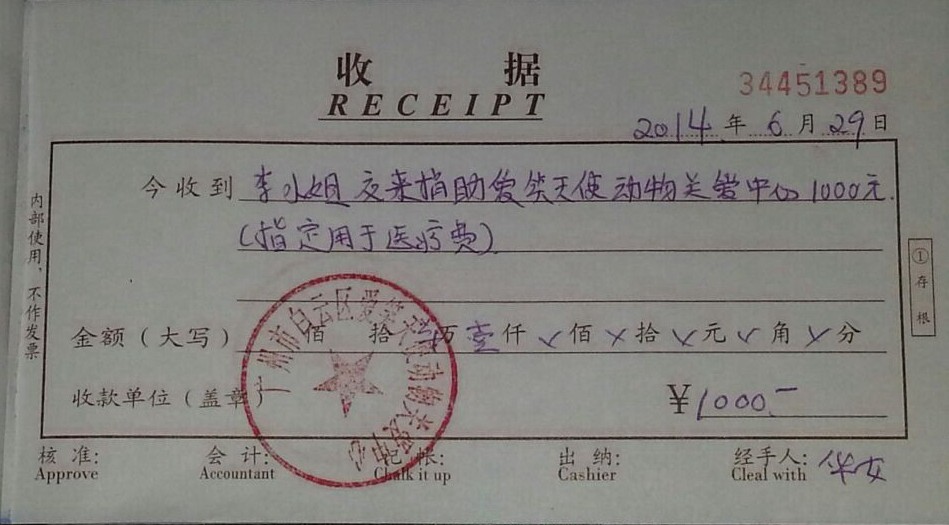 收 据
RECEIPT
34451389
2014 年 6 月 29 日
今收到 李小姐 交来捐助爱笑天使动物关爱中心1000元.
(指定用于医疗费)
金额(大写) 佰 拾 万 壹 仟 佰 拾 元 角 分
收款单位(盖章) ¥1000.-
广州市白云区爱笑天使动物关爱中心
核 准: 会 计: 记 帐: 出 纳: 经手人:
Approve Accountant Chalk it up Cashier Cleal with
内部使用,不作发票
①存根